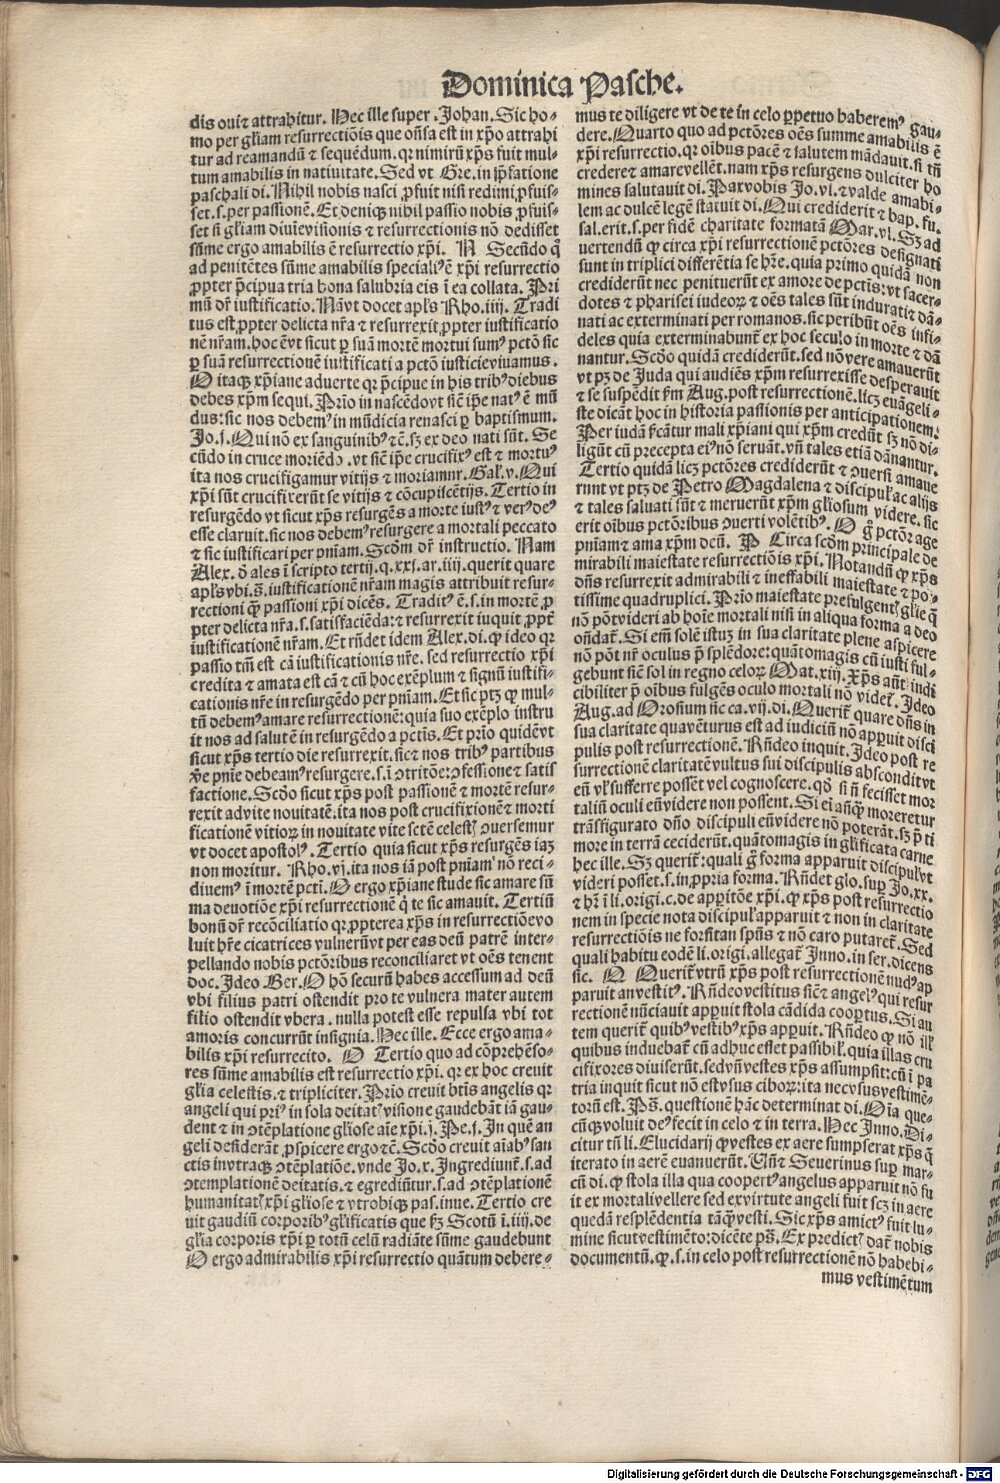 Dominica Pasche.
dis ouiꝫ attrahitur. Hec ille super .Johan. Sic ho⸗
mo per gl̃iam resurrectiõis que oñsa est in xp̃o attrahi
tur ad reamandũ ⁊ sequẽdum. qꝛ nimirũ xp̃s fuit mul⸗
tum amabilis in natiuitate. Sed vt Gre. in p̃fatione
paschali di. Nihil nobis nasci ꝓfuit nisi redimi ꝓfuis⸗
set .s. per passionẽ. Et deniqꝫ nihil passio nobis ꝓfuis⸗
set si gl̃iam diuine visionis ⁊ resurrectionis nõ dedisset
sũme ergo amabilis ẽ resurrectio xp̃i. N Secũdo qꝫ
ad penitẽtes sũme amabilis speciali⁹ ẽ xp̃i resurrectio
ꝓpter p̃cipua tria bona salubria eis ĩ ea collata. Pri
mũ dr̃ iustificatio. Nã vt docet apl̃s Rho. iiij. Tradi
tus est ꝓpter delicta nr̃a ⁊ resurrexit ꝓpter iustificatio
nẽ nr̃am. hoc ẽ vt sicut ꝑ suã mortẽ mortui sum⁹ pctõ sic
ꝑ suã resurrectionẽ iustificati a pctõ iusticie viuamus.
O itaqꝫ xp̃iane aduerte qꝛ p̃cipue in his trib⁹ diebus
debes xp̃m sequi. Prio in nascẽdo vt sicẽ ip̃e nat⁹ ẽ mũ
dus: sic nos debem⁹ in mũdicia renasci ꝑ baptismum.
Jo. j. Qui nõ ex sanguinib⁹ ⁊c̃. sꝫ ex deo nati sũt. Se
cũdo in cruce moriẽdo .vt sicẽ ip̃e crucifix⁹ est ⁊ mortu⁹
ita nos crucifigamur vitijs ⁊ moriamur. Gal̃. v. Qui
xp̃i sũt crucifixerũt se vitijs ⁊ cõcupiscẽtijs. Tertio in
resurgẽdo vt sicut xp̃s resurgẽs a morte iust⁹ ⁊ ver⁹ de⁹
esse claruit. sic nos debem⁹ resurgere a mortali peccato
⁊ sic iustificari per pn̄iam. Scd̃m dr̃ instructio. Nam
Alex. d̃ ales ĩ scripto tertij. q. xxj. ar. iiij. querit quare
apl̃s vbi .s̃. iustificationẽ nr̃am magis attribuit resur⸗
rectioni qꝫ̃ passioni xp̃i dicẽs. Tradit⁹ ẽ .s. in mortẽ ꝓ
pter delicta nr̃a .s. satisfaciẽda: ⁊ resurrexit iuquit ꝓpt̃
iustificationẽ nr̃am. Et rñdet idem Alex. di. ꝙ ideo qꝛ
passio tm̃ est cã iustificationis nr̃e. sed resurrectio xp̃i
credita ⁊ amata est cã ⁊ cũ hoc exẽplum ⁊ signũ iustifi⸗
cationis nr̃e in resurgẽdo per pn̄iam. Et sic ptꝫ ꝙ mul⸗
tũ debem⁹ amare resurrectionẽ: quia suo exẽplo instru
it nos ad salutẽ in resurgẽdo a pctĩs. Et prio quidẽ vt
sicut xp̃s tertio die resurrexit. sic ⁊ nos trib⁹ partibus
ṽe pn̄ie debeam⁹ resurgere .s. ĩ ꝯtritõe: ꝯfessione ⁊ satis
factione. Scd̃o sicut xp̃s post passionẽ ⁊ mortẽ resur⸗
rexit ad vite nouitatẽ. ita nos post crucifixionẽ ⁊ morti
ficationẽ vitioꝝ in nouitate vite sctẽ celestꝭ ꝯuersemur
vt docet apostol⁹. Tertio quia sicut xp̃s resurgẽs iaꝫ
non moritur. Rho. vj. ita nos iã post pn̄iam nõ reci⸗
diuem⁹ ĩ mortẽ pcti. O ergo xp̃iane stude sic amare sũ
ma deuotiõe xp̃i resurrectionẽ q̃ te sic amauit. Tertiũ
bonũ dr̃ recõciliatio qꝛ ꝓpterea xp̃s in resurrectiõe vo
luit hr̃e cicatrices vulnerũ vt per eas deũ patrẽ inter⸗
pellando nobis pctõribus reconciliaret vt oẽs tenent
doc. Ideo Ber. O hõ securũ habes accessum ad deũ
vbi filius patri ostendit pro te vulnera mater autem
filio ostendit vbera. nulla potest esse repulsa vbi tot
amoris concurrũt insignia. Hec ille. Ecce ergo ama⸗
bilis xp̃i resurrecito. O Tertio quo ad cõprehẽso⸗
res sũme amabilis est resurrectio xp̃i. qꝛ ex hoc creuit
gl̃ia celestis. ⁊ tripliciter. Prio creuit btĩs angelis qꝛ
angeli qui pri⁹ in sola deitatꝭ visione gaudebãt iã gau⸗
dent ⁊ in ꝯtẽplatione gl̃iose aĩe xp̃i. j. Pe. j. In quẽ an
geli desiderãt ꝓspicere ergo ⁊c̃. Scd̃o creuit aĩab⁹ san
ctis in vtraqꝫ ꝯtẽplatiõe. vnde Jo. x. Ingrediunt̃ .s. ad
ꝯtemplationẽ deitatis. ⁊ egrediũtur .s. ad ꝯtẽplationẽ
humanitatꝭ xp̃i gl̃iose ⁊ vtrobiqꝫ pas. inue. Tertio cre
uit gaudiũ corporib⁹ gl̃ificatis que sꝫ Scotũ ĩ. iiij. de
gl̃ia corporis xp̃i ꝑ totũ celũ radiãte sũme gaudebunt
O ergo admirabilis xp̃i resurrectio quãtum debere⸗
mus te diligere vt de te in celo ꝑpetuo haberem⁹ gau⸗
dere. Quarto quo ad pctõres oẽs summe amabilis ẽ
xp̃i resurrectio. qꝛ oĩbus pacẽ ⁊ salutem mãdauit. si tñ
credere ⁊ amare vellẽt. nam xp̃s resurgens dulciter ho
mines salutauit di. Pax vobis Jo. vl. ⁊ valde amabi⸗
lem ac dulcẽ legẽ statuit di. Qui crediderit ⁊ bap. fu.
sal. erit .s. per fidẽ charitate formatã Mar. vl. Sꝫ ad
uertendũ ꝙ circa xp̃i resurrectionẽ pctõres designati
sunt in triplici differẽtia se hr̃e. quia primo quidã non
crediderũt nec penituerũt ex amore de pctĩs: vt sacer⸗
dotes ⁊ pharisei iudeoꝝ ⁊ oẽs tales sũt indurati ⁊ dã⸗
nati ac exterminati per romanos. sic peribũt oẽs infi⸗
deles quia exterminabunt̃ ex hoc seculo in morte ⁊ dã
nantur. Scd̃o quidã crediderũt. sed nõ vere amauerũt
vt pꝫ de Juda qui audiẽs xp̃m resurrexisse desperauit
⁊ se suspẽdit ẜm Aug. post resurrectionẽ. licꝫ euãgeli⸗
ste dicãt hoc in historia passionis per anticipationem.
Per iudã ẜcãtur mali xp̃iani qui xp̃m credũt sꝫ nõ di⸗
ligũt cũ precepta ei⁹ nõ seruãt. vñ tales etiã dãnantur.
Tertio quidã licꝫ pctõres crediderũt ⁊ ꝯuersi amaue
runt vt ptꝫ de Petro Magdalena ⁊ discipul̃ ac alijs
⁊ tales saluati sũt ⁊ meruerũt xp̃m gl̃iosum videre. sic
erit oĩbus pctõribus ꝯuerti volẽtib⁹. O g̃ pctõr age
pn̄iam ⁊ ama xp̃m deũ. P Circa scd̃m principale de
mirabili maiestate resurrectiõis xp̃i. Notandũ ꝙ xp̃s
dñs resurrexit admirabili ⁊ ineffabili maiestate ⁊ po⸗
tissime quadruplici. Prio maiestate prefulgentꝭ gl̃ie q̃
nõ põt videri ab hoĩe mortali nisi in aliqua forma a deo
oñdat̃. Si em̃ solẽ istuꝫ in sua claritate plene aspicere
nõ põt nr̃ oculus p̃ splẽdore: quãtomagis cũ iusti ful⸗
gebunt sicẽ sol in regno celoꝝ Mat. xiij. Xp̃s aũt indi
cibiliter p̃ oĩbus fulgẽs oculo mortali nõ videt̃. Ideo
Aug. ad Orosium sic ca. vij. di. Querit̃ quare dñs in
sua claritate quã vẽturus est ad iudiciũ nõ apꝑuit disci
pulis post resurrectionẽ. Rñdeo inquit. Ideo post re
surrectionẽ claritatẽ vultus sui discipulis abscondit vt
eũ vl̃ sufferre possẽt vel cognoscere. qd̃ si ñ fecisset mor
taliũ oculi eũ videre non possent. Si ei añqꝫ moreretur
trãsfigurato dño discipuli eũ videre nõ poterãt. sꝫ p̃ ti
more in terrã ceciderũt. quãtomagis in gl̃ificata carne
hec ille. Sꝫ querit̃: quali g̃ forma apparuit discipul̃ vt
videri posset .s. in ꝓpria forma. Rñdet glo. suꝑ Jo. xx.
⁊ hr̃ ĩ li. origi. c. de apꝑitõe xp̃i. ꝙ xp̃s post resurrectio
nem in specie nota discipul̃ apparuit ⁊ non in claritate
resurrectiõis ne forsitan spũs ⁊ nõ caro putaret̃. Sed
quali habitu eodẽ li. origi. allegat̃ Inno. in ser. dicens
sic. Q Querit̃ vtrũ xp̃s post resurrectionẽ nud⁹ ap
paruit an vestit⁹. Rñdeo vestitus sicẽ ⁊ angel⁹ qui resur
rectionẽ nũciauit apꝑuit stola cãdida cooꝑtus. Si au
tem querit̃ quib⁹ vestib⁹ xp̃s apꝑuit. Rñdeo ꝙ nõ ill̃
quibus induebat̃ cũ adhuc esset passibil̃. quia illas cru
cifixores diuiserũt. sed vñ vestes xp̃s assumpsit: cũ ĩ pa
tria inquit sicut nõ est vsus ciboꝝ: ita nec vsus vestimẽ⸗
torũ est. Ps̃. questionẽ hãc determinat di. Oĩa que⸗
cũqꝫ voluit de⁹ fecit in celo ⁊ in terra. Hec Inno. Di⸗
citur tñ li. Elucidarij ꝙ vestes ex aere sumpserat xp̃s q̃
iterato in aerẽ euanuerũt. Uñ ⁊ Seuerinus suꝑ mar⸗
cũ di. ꝙ stola illa qua coopert⁹ angelus apparuit nõ fu
it ex mortali vellere sed ex virtute angeli fuit scꝫ in aere
quedã resplẽdentia tãqꝫ̃ vesti. Sic xp̃s amict⁹ fuit lu⸗
mine sicut vestimẽto: dicẽte ps̃. Ex predictꝭ dat̃ nobis
documentũ. ꝙ .s. in celo post resurrectionẽ nõ habebi⸗
mus vestimẽtum
Digitalisierung gefördert durch die Deutsche Forschungsgemeinschaft - DFG